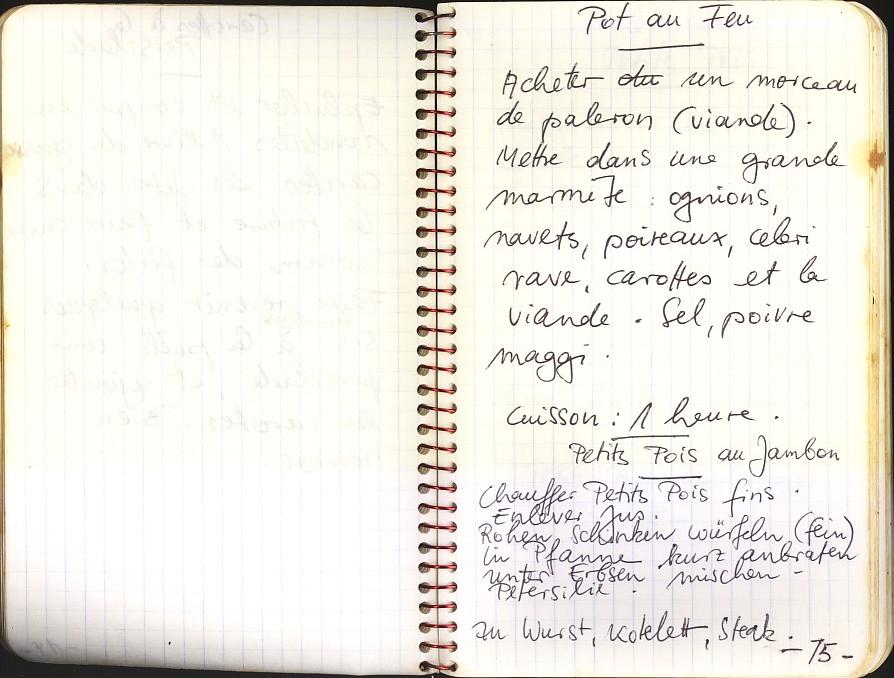 Pot au Feu
Acheter du un morceau
de paleron (viande).
Mettre dans une grande
marmite : ognions,
navets, poireaux, celeri
rave, carottes et la
viande. Sel, poivre
maggi.
Cuisson : 1 heure.
Petits Pois au Jambon
Chauffer Petits Pois fins.
Enlever Jus.
Rohen Schinken würfeln (fein)
in Pfanne kurz anbraten
unter Erbsen mischen -
Petersilie.
zu Wurst, Kotelett, Steak.
- 75 -